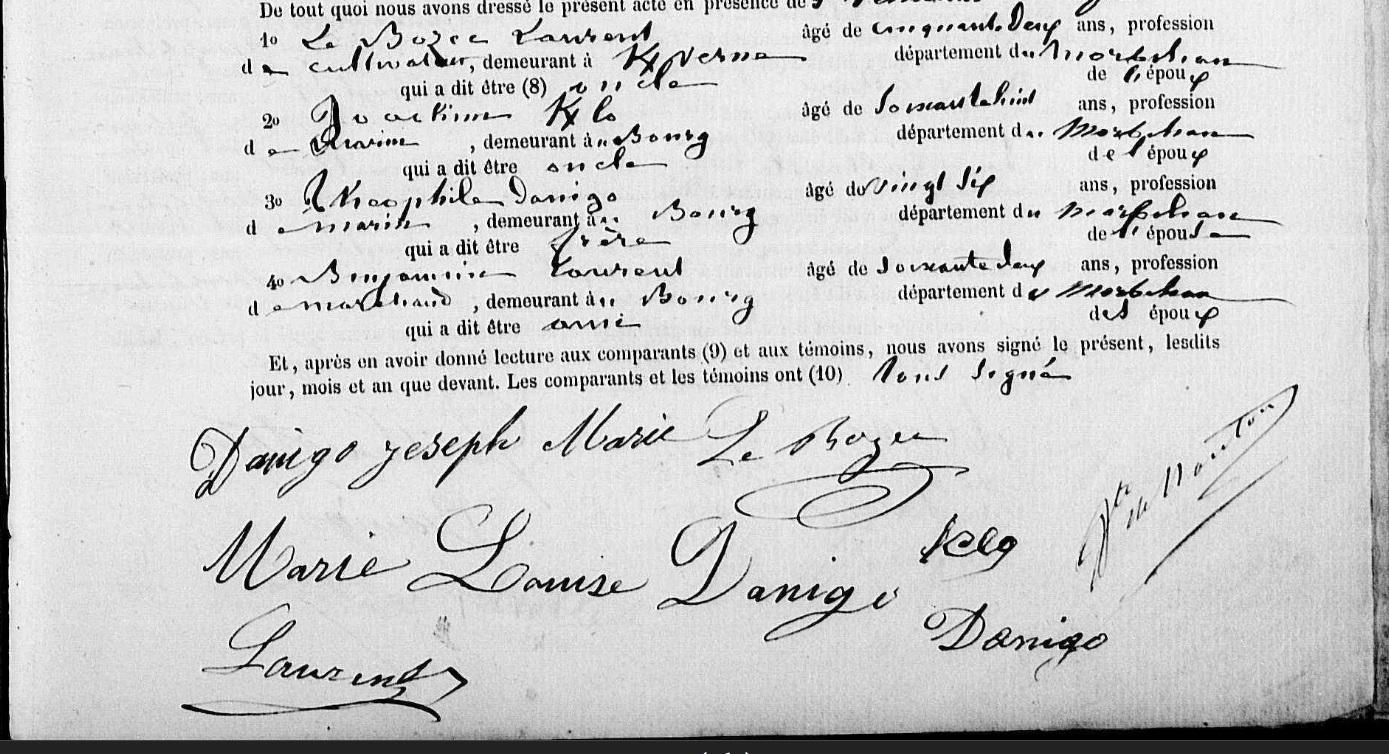 De tout quoi nous avons dressé le présent acte en présence de
1o Le Bozec Laurent âgé de cinquante deux ans, profession
de cultivateur, demeurant à département du Morbihan
qui a dit être (8) oncle de l'époux
2o Joachim âgé de ans, profession
de Marin, demeurant au Bourg département du Morbihan
qui a dit être oncle de l'époux
3o Théophile Danigo âgé de vingt six ans, profession
de marin, demeurant au Bourg département du Morbihan
qui a dit être frère de l'épouse
4o Benjamin Laurent âgé de soixante deux ans, profession
de marchand, demeurant au Bourg département du Morbihan
qui a dit être ami des époux
Et, après en avoir donné lecture aux comparants (9) et aux témoins, nous avons signé le présent, lesdits
jour, mois et an que devant. Les comparants et les témoins ont (10) tous signé
Danigo Joseph Marie Le Bozec
Marie Louise Danigo
Danigo
Laurent